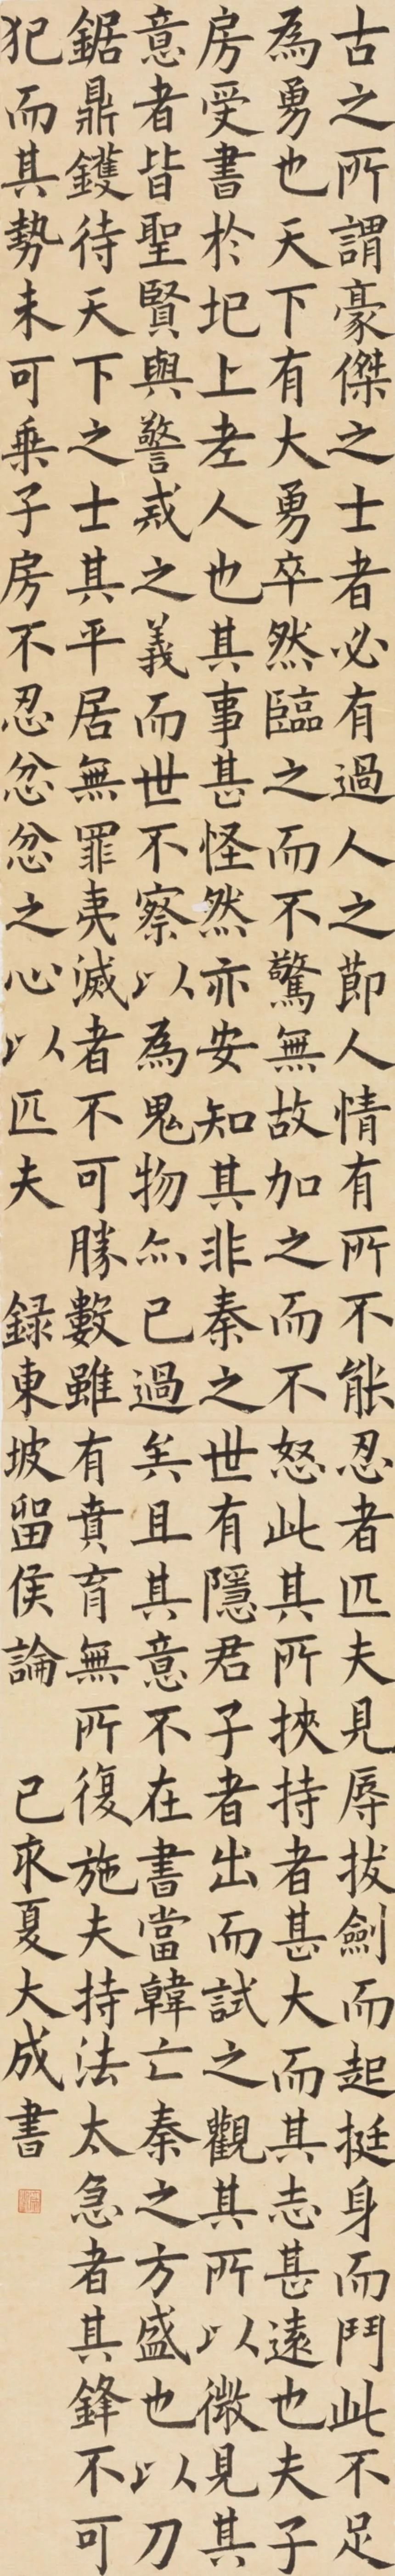 古之所謂豪傑之士者必有過人之節人情有所不能忍者匹夫見辱拔劍而起挺身而鬥此不足
為勇也天下有大勇卒然臨之而不驚無故加之而不怒此其所挾持者甚大而其志甚遠也夫子
房受書於圯上老人也其事甚怪然亦安知其非秦之世有隱君子者出而試之觀其所以微見其
意者皆聖賢與警戒之義而世不察以為鬼物亦已過矣且其意不在書當韓亡秦之方盛也以刀
鋸鼎鑊待天下之士其平居無罪夷滅者不可勝數雖有賁育無所復施夫持法太急者其鋒不可
犯而其勢未可乘子房不忍忿忿之心以匹夫 録東坡留侯論 己亥夏大成書